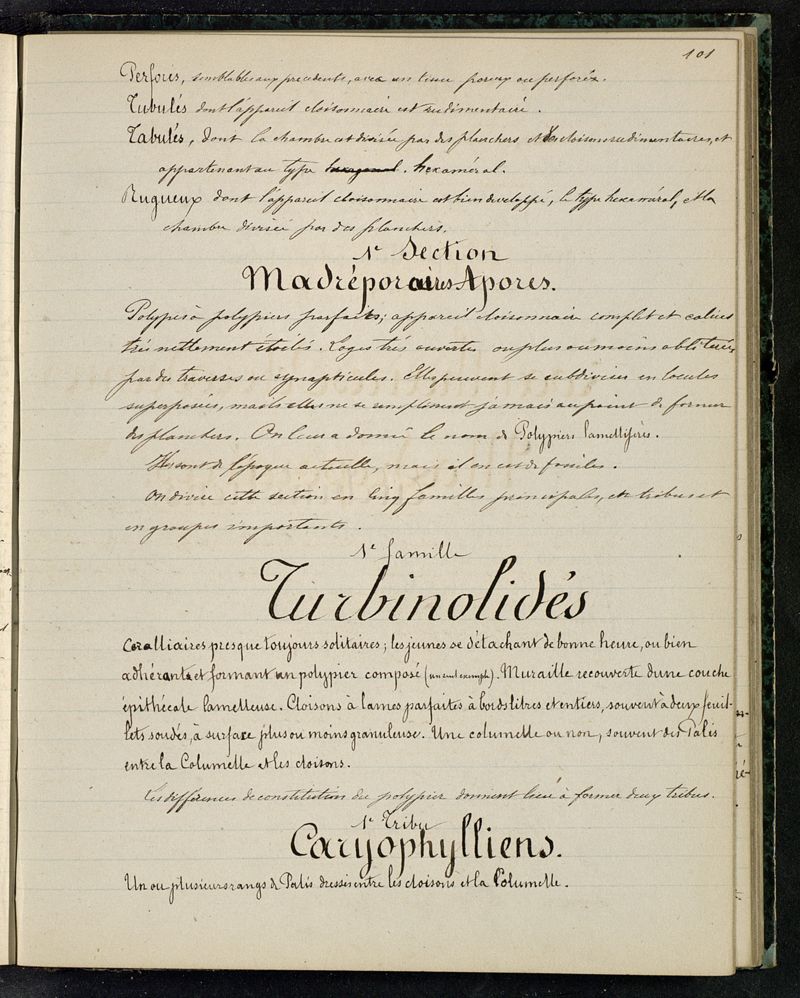 101
Perforés, semblables aux précedents, avec un tissu poreux ou perforés.
Tubulés dont l'appareil cloisonnaire est rudimentaire.
Tabulés, dont la chambre est divisée par des planchers et des cloisons rudimentaires, et
appartenant au type hexagonal. hexaméral.
Rugueux dont l'appareil cloisonnaire est bien developpé, le type hexaméral, et la
chambre divisée par des planchers.
1e Section
Madréporaires Apores.
Polypes à polypiers parfaits; appareil cloisonnaire complet et calices
très nettement étoilés. Loges très ouvertes ou plus ou moins oblitérées
par des traverses ou synapticules. Elles peuvent se subdiviser en locules
superposées, mais elles ne se remplissent jamais au point de former
des planchers. On leur a donné le nom de Polypiers lamellifères.
Ils sont de l'époque actuelle, mais il en est de fossiles.
On divise cette section en cinq familles principales, et tribus et
en groupes importants.
1e famille
Turbinolidés
Coralliaires presque toujours solitaires; les jeunes se détachant de bonne heure, ou bien
adhérants et formant un polypier composé (un seul exemple). Muraille recouverte dune couche
épithécale lamelleuse. Cloisons à lames parfaites à bords libres et entiers, souvent à deux feuil-
lets soudés, à surface plus ou moins granuleuse. Une columelle ou non, souvent des Palis
entre la Columelle et les cloisons.
Les différences de constitution du polypier donnent lieu à former deux tribus.
1e Tribu
Caryophylliens.
Un ou plusieurs rangs de Palis dressés entre les cloisons et la Columelle.